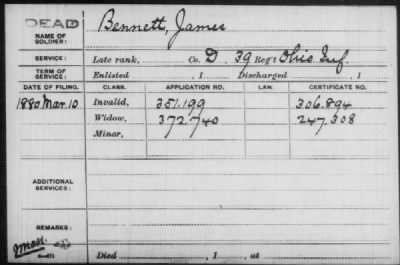 DEAD
NAME OF SOLDIER: Bennett, James
SERVICE: Late rank, Co. D. 39 Reg't Ohio Inf.
TERM OF SERVICE: Enlisted , 1 Discharged , 1
DATE OF FILING. CLASS. APPLICATION NO. LAW. CERTIFICATE NO.
1880 Mar. 10 Invalid, 351.199 306.894
Widow, 372.740 247.308
Minor,
ADDITIONAL SERVICES:
REMARKS:
Died , 1 , at